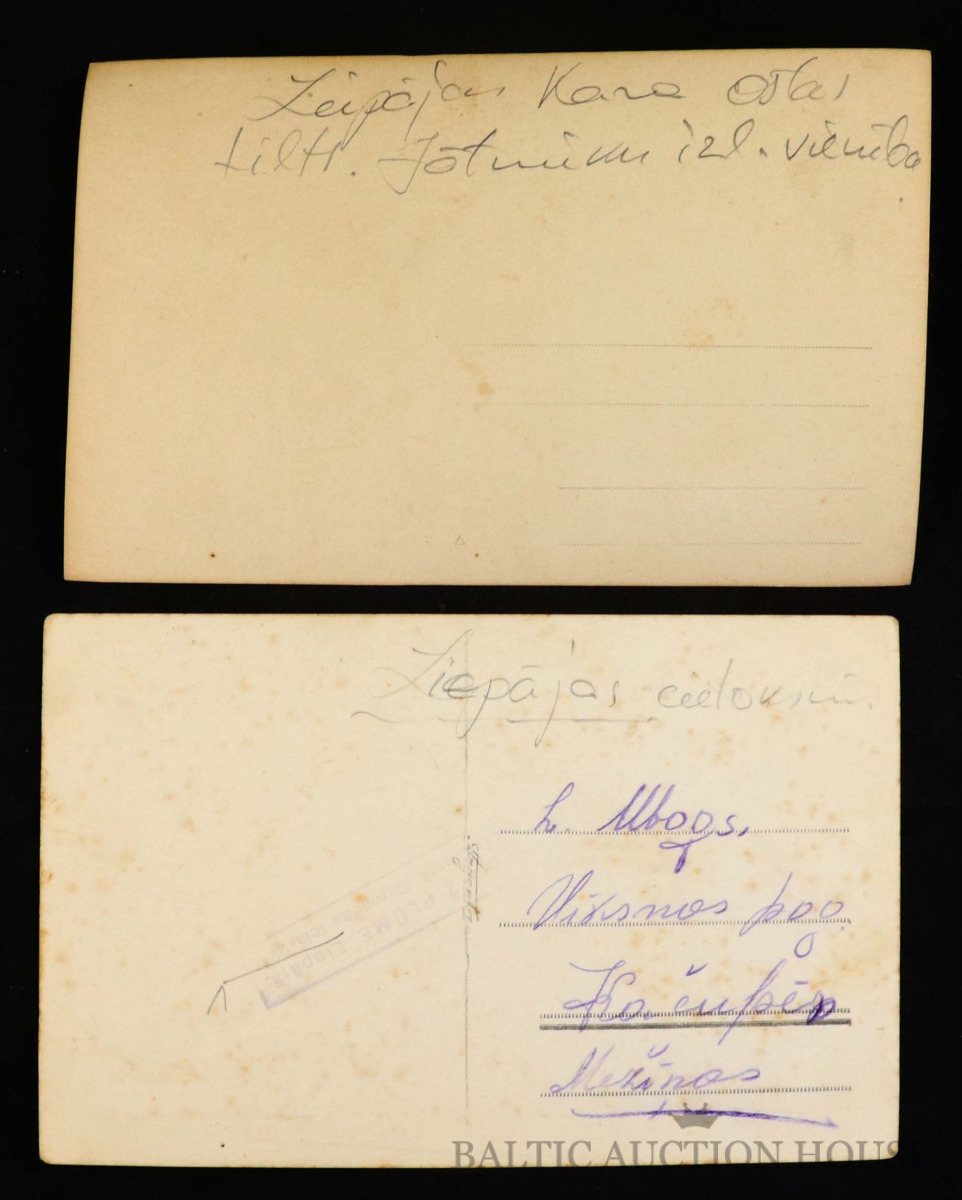 Liepājas Kara Ostas
tilts. Jātnieku izl. vienība.
Liepājas cietoksni.
Viksnas pag.
Kačupēs
Mežiņos
BALTIC AUCTION HOUSE